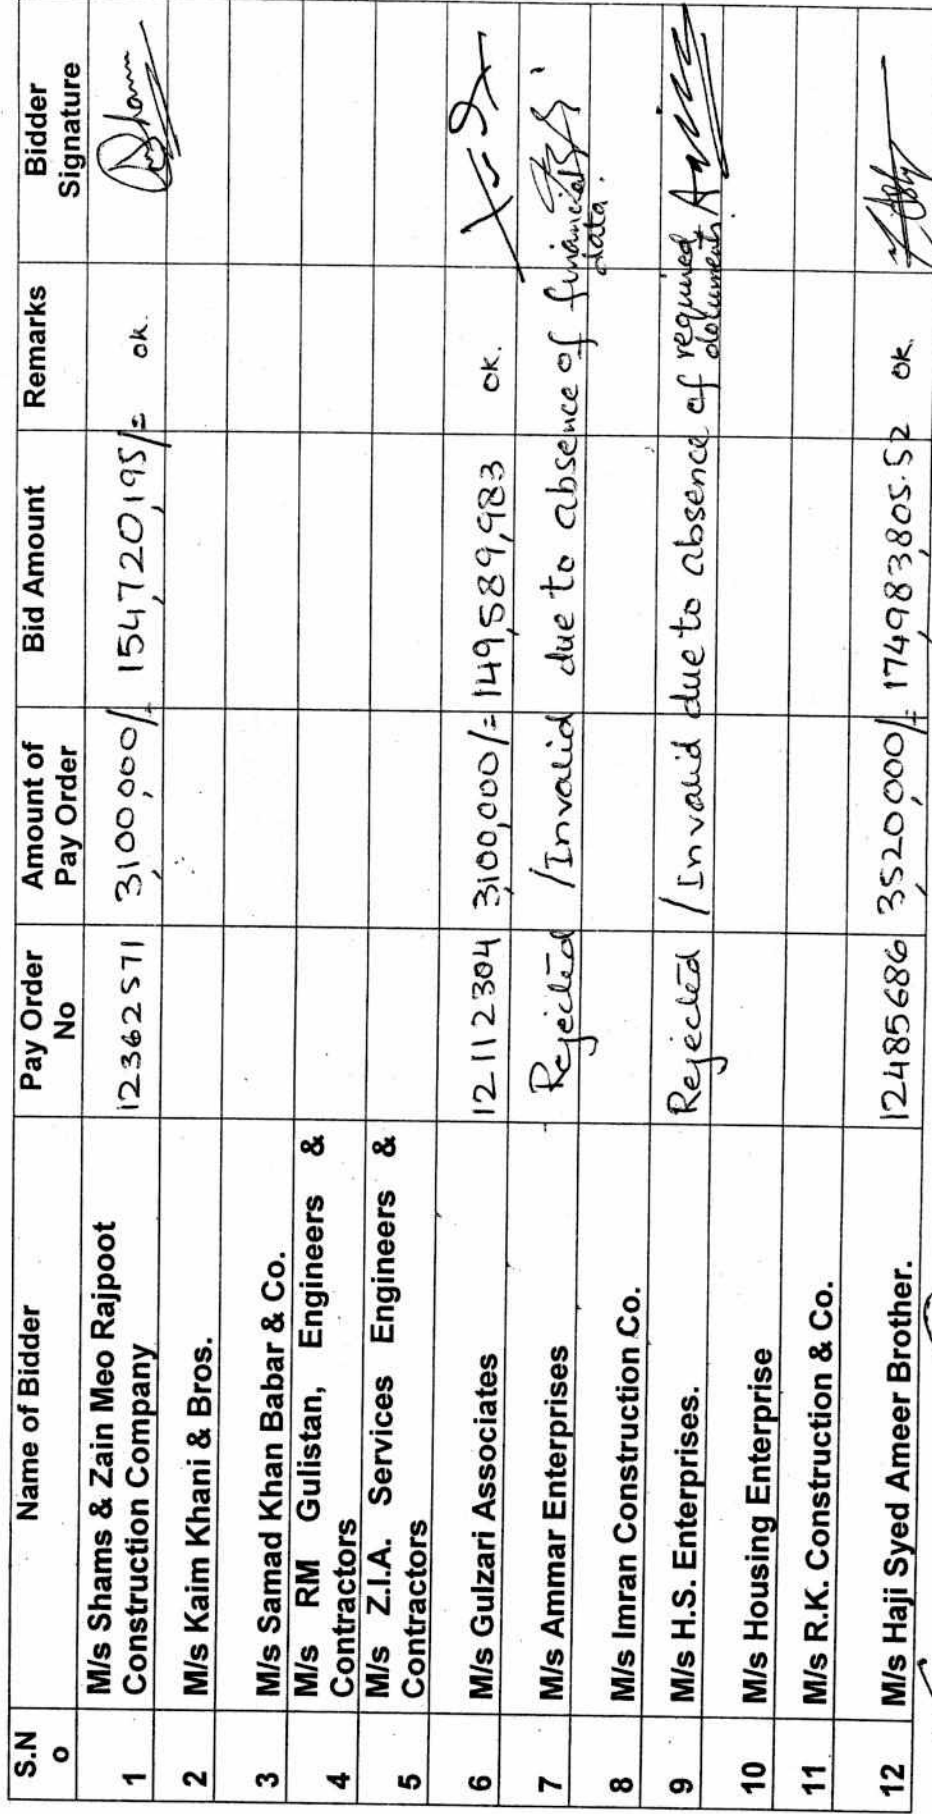 S.N
o
Name of Bidder
Pay Order
No
Amount of
Pay Order
Bid Amount
Remarks
Bidder
Signature
1
M/s Shams & Zain Meo Rajpoot
Construction Company
12362571
3,100,000/-
154,720,195/=
ok.
2
M/s Kaim Khani & Bros.
3
M/s Samad Khan Babar & Co.
4
M/s RM Gulistan, Engineers &
Contractors
5
M/s Z.I.A. Services Engineers &
Contractors
6
M/s Gulzari Associates
12112304
3,100,000/=
149,589,983
ok.
7
M/s Ammar Enterprises
Rejected /Invalid due to absence of financial
data.
8
M/s Imran Construction Co.
9
M/s H.S. Enterprises.
Rejected /Invalid due to absence of required
document.
10
M/s Housing Enterprise
11
M/s R.K. Construction & Co.
12
M/s Haji Syed Ameer Brother.
12485686
3,520,000/=
174,983,805.52
ok.